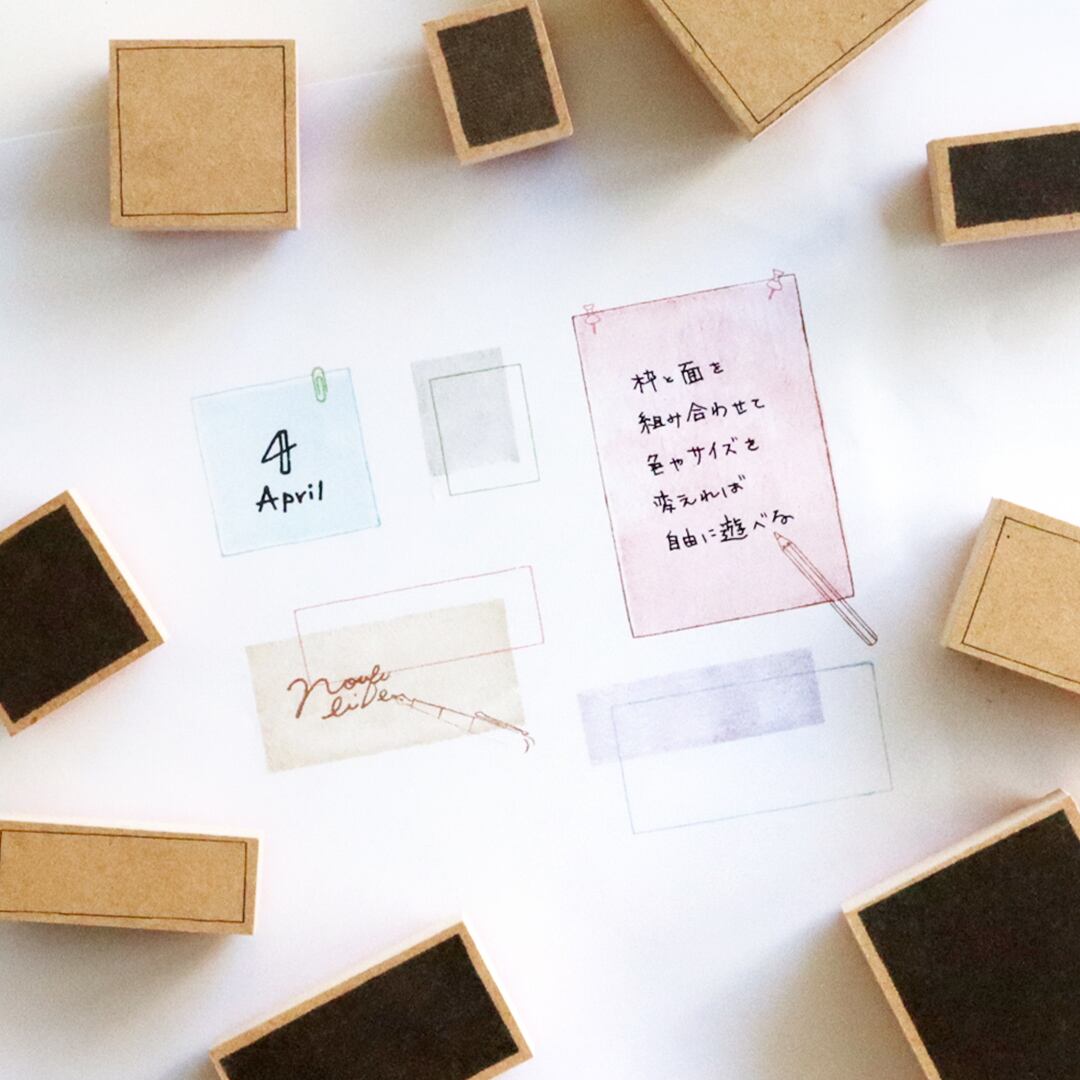 4
April
枠と面を
組み合わせて
色やサイズを
変えれば
自由に遊べる
life